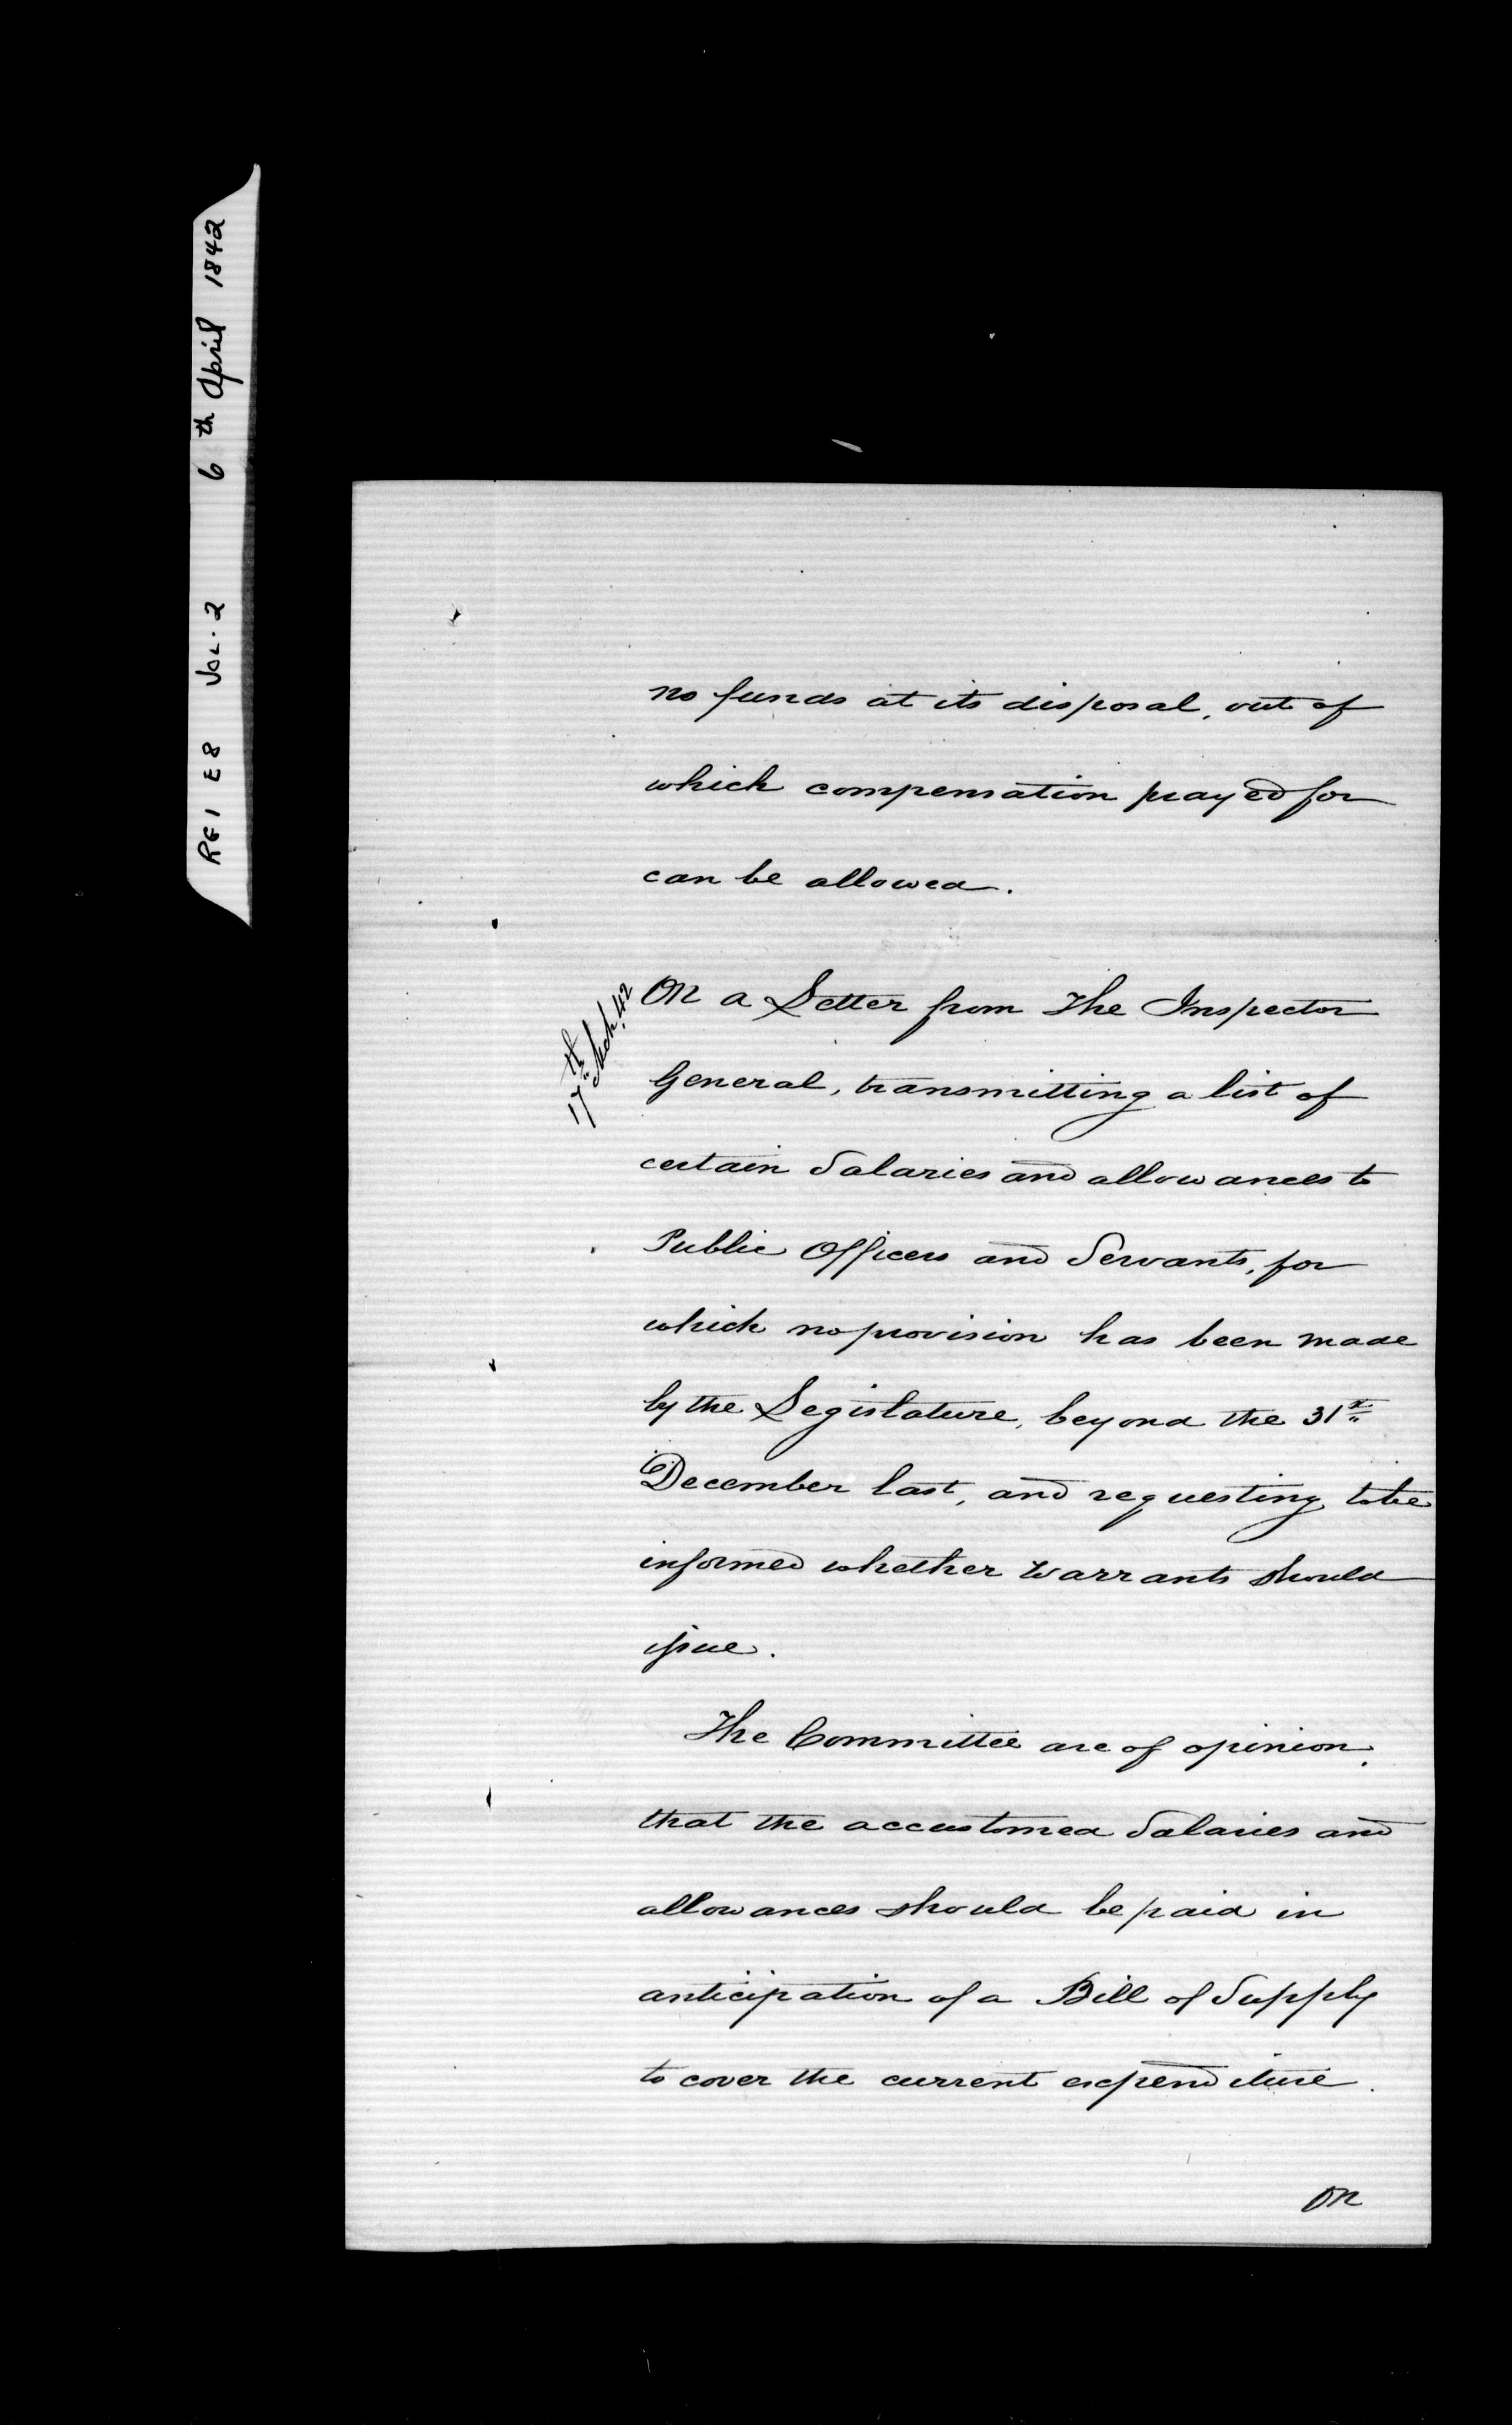 RG1 E8 VOL. 2 6th April 1842
no funds at its disposal, out of
which compensation prayed for
can be allowed.
17th Mch. 42
On a Letter from The Inspector
General, transmitting a list of
certain Salaries and allowances to
Public Officers and Servants, for
which no provision has been made
by the Legislature, beyond the 31st
December last, and requesting to be
informed whether Warrants should
issue.
The Committee are of opinion,
that the accustomed Salaries and
allowances should be paid in
anticipation of a Bill of Supply
to cover the current expenditure.
On